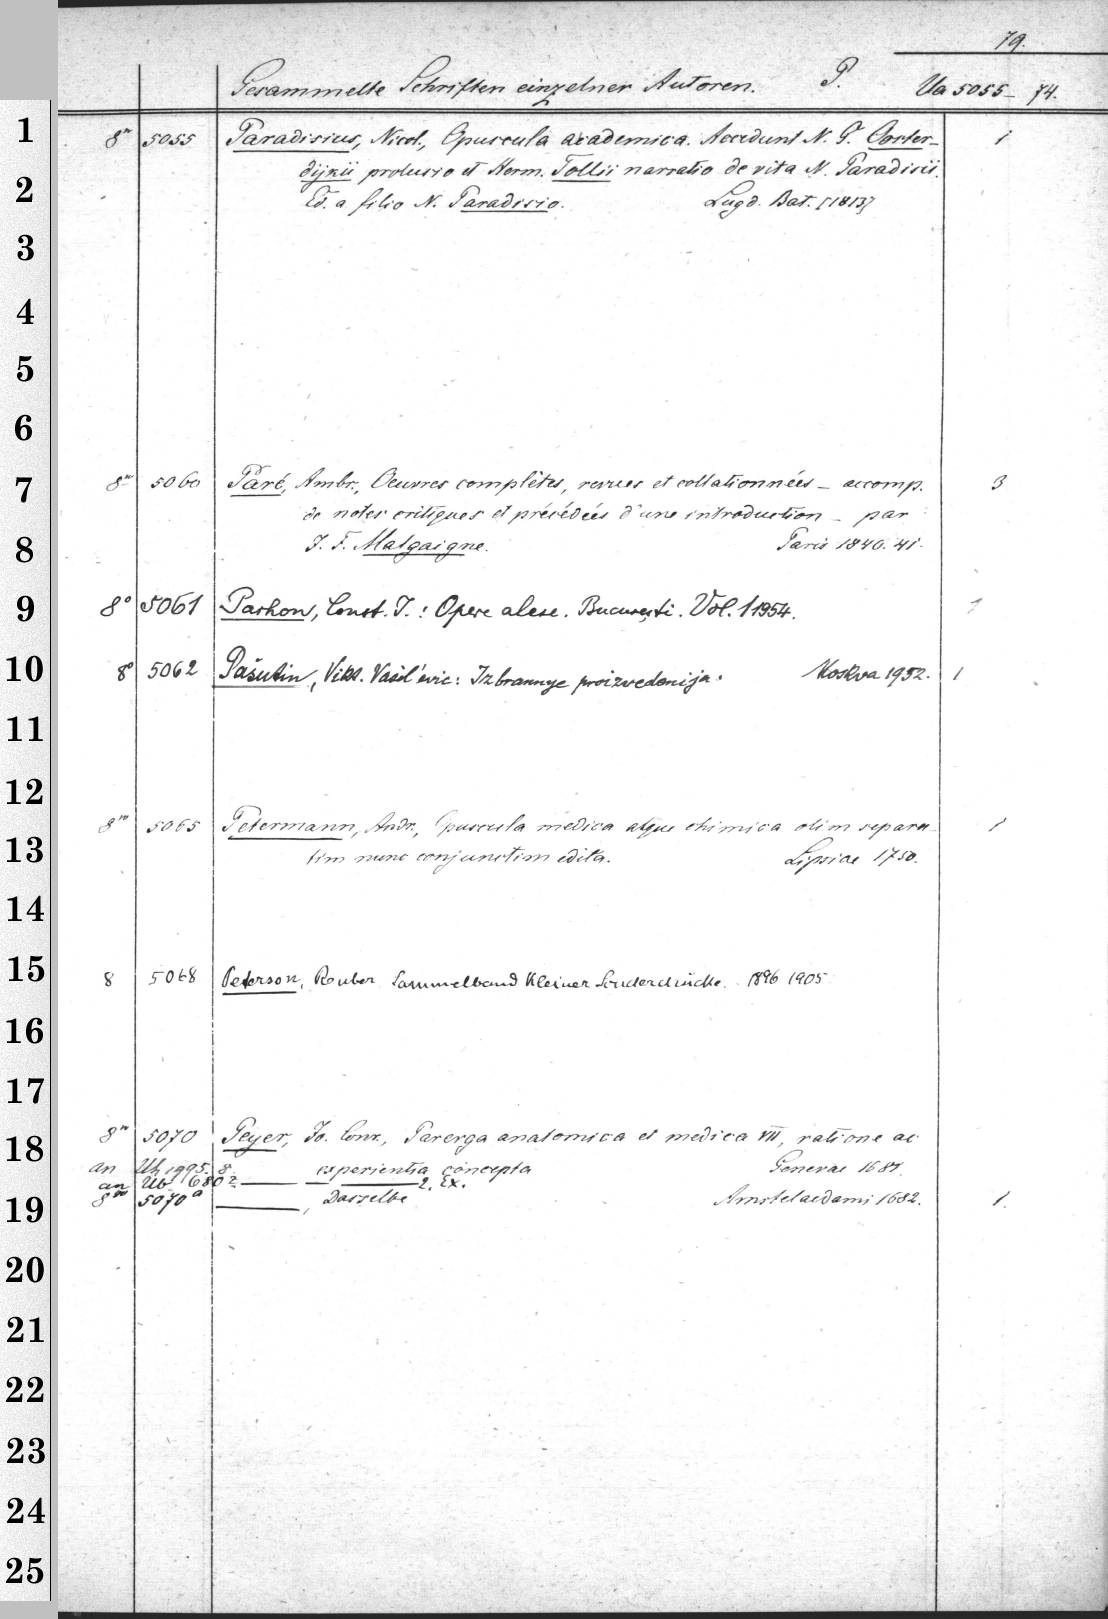 79.
Gesammelte Schriften einzelner Autoren. P. Ua 5055-74.
1
8º 5055 Paradisius, Nicol., Opuscula academica. Accedunt N. G. Ooster- 1
dijkii prolusio et Herm. Tollii narratio de vita N. Paradisii.
2
Ed. a filio N. Paradisio. Lugd. Bat. [1813]
3
4
5
6
7
8º 5060 Paré, Ambr., Oeuvres complètes, revues et collationnées - accomp. 3
de notes critiques et précédées d'une introduction - par
8
J. F. Malgaigne. Paris 1840. 41.
9
8º 5061 Parhon, Const. J.: Opere alese. București. Vol. 1 1954. 1
10
8º 5062 Pašutin, Vikt. Vasil'evic: Izbrannye proizvedenija. Moskva 1952. 1
11
12
8vo 5065 Petermann, Andr., Opuscula medica atque chimica olim separa- 1
13
tim nunc conjunctim edita. Lipsiae 1750.
14
15
8 5068 Peterson, Reuber Sammelband kleiner Sonderdrucke. 1896 1905
16
17
18
8vo 5070 Peyer, Jo. Conr., Parerga anatomica et medica VII, ratione ac
an Uh 1995. 8. experientia concepta Genevae 1681.
an Ub 680 2. Ex.
19
8vo 5070a ———, Dasselbe Amstelaedami 1682. 1.
20
21
22
23
24
25